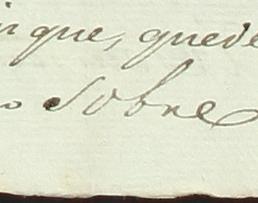 que, quede
sobre